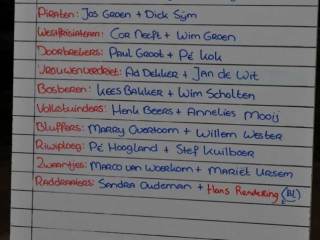 Piraten: Jos Groen + Dick Sijm
Westfrisiateam: Cor Neeft + Wim Groen
Doorbrekers: Paul Groot + Pé Kok
Vrouwenverdriet: Ad Dekker + Jan de Wit
Bosberen: Kees Bakker + Wim Scholten
Volkstuinders: Henk Beers + Annelies Mooij
Bluffers: Marry Overtoom + Willem Wester
Riwiploeg: Pé Hoogland + Stef Kuilboer
Zwaantjes: Marco van Woerkom + Mariët Ursem
Raddraaiers: Sandra Oudeman + Hans Rendering (BL)